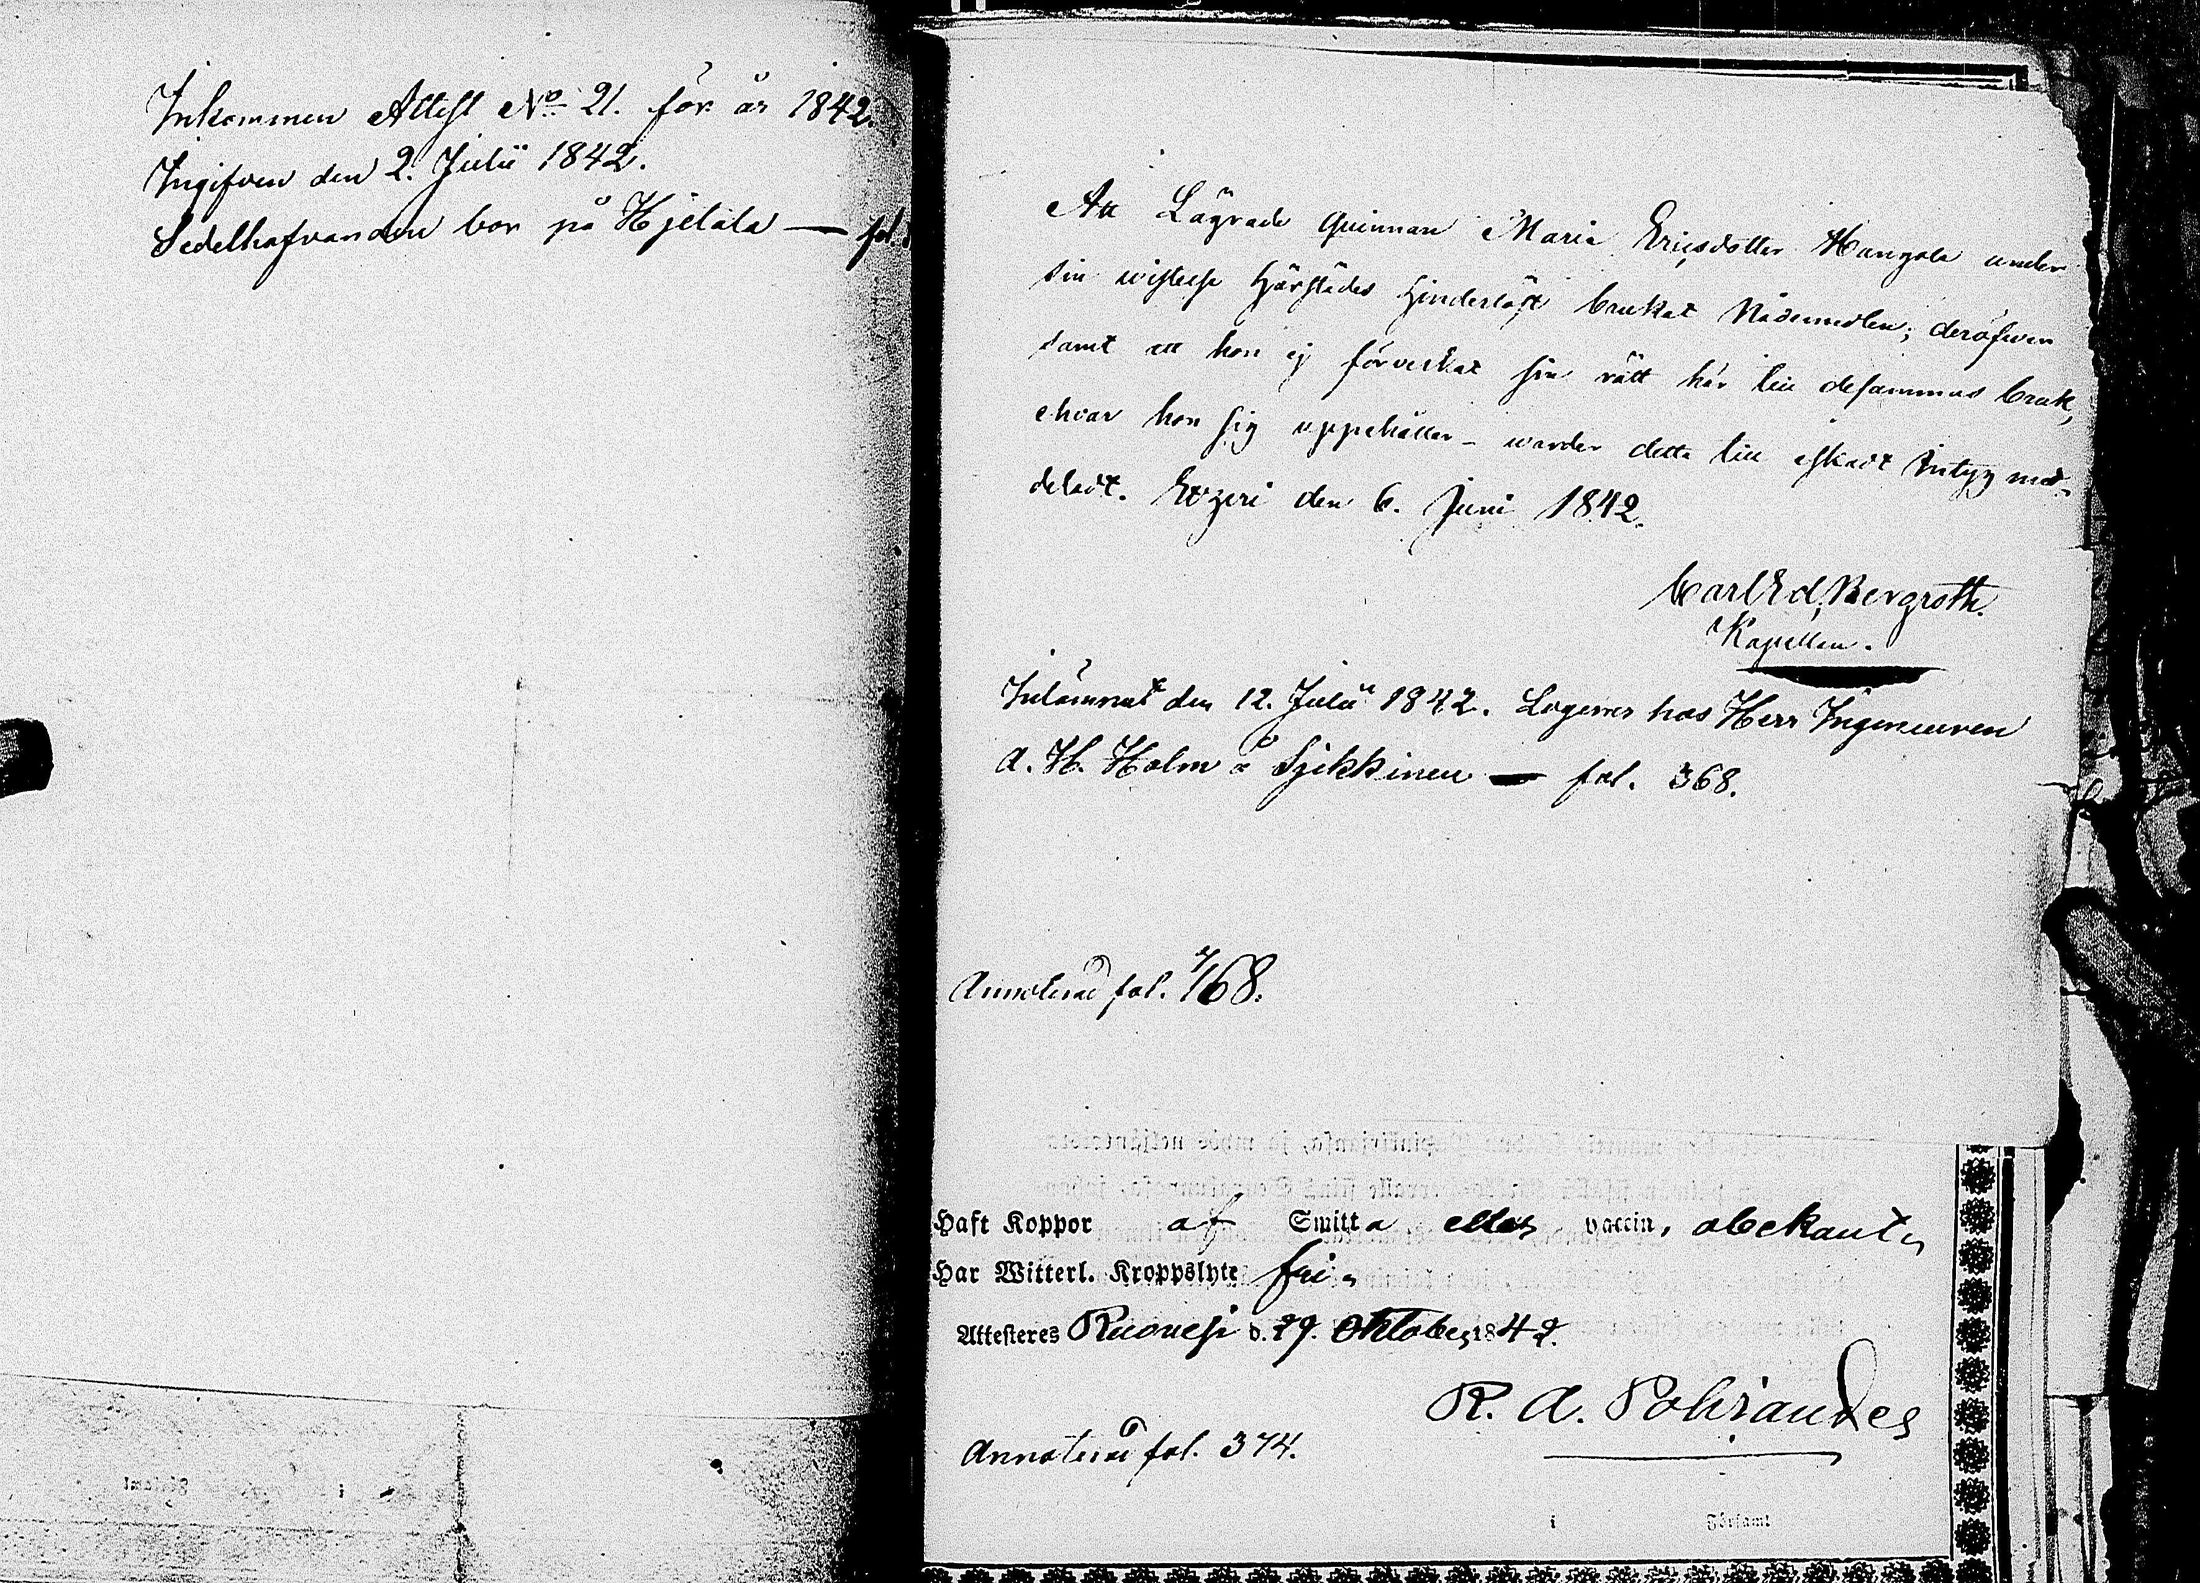 Inkommen Attest No 21. för år 1842.
Ingifven den 2. Julii 1842.
Sedelhafvanden bor på Hjelala — fol.
Att Lägrade quinnan Maria Ericsdotter Hangala under
sin wistelse härstädes hinderlöst brukat Nådemedlen; deröfwer
samt att hon ej förverkat sin rätt här till desammas bruk,
ehvar hon sig uppehåller – warder detta till äskadt Intyg med-
deladt. den 6. Juni 1842.
Carl Ed. Bergroth.
Kapellan.
Inlämnat den 12. Julii 1842. Logerer hos Herr Ingenieuren
A. H. Holm å Sjikkinen — fol. 368.
Annoterad fol. 168.
Haft Koppor af Smitta eller vaccin, obekant,
Har Witterl. Kroppslyte fri.
Attesteres Ruovesi d. 29. Oktober 1842.
R. A. Pohjrandes
Annoterad fol. 374.
i Församl